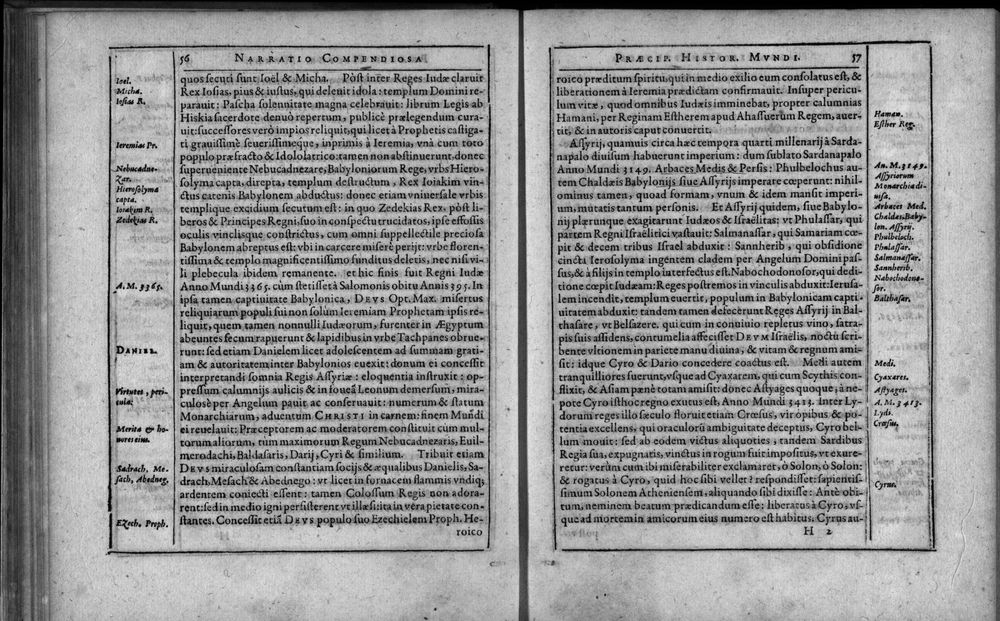 56 NARRATIO COMPENDIOSA
Ioel.
Micha.
Iosias R.
Ieremias Pr.
Nebucadne-
Zar.
Hierosolyma
capta.
Ioiakim R.
Zedekias R.
A. M. 3365.
DANIEL.
Virtutes, peri-
cula.
Merita & ho-
nores eius.
Sadrach, Me-
sach, Abedneg.
Ezech. Proph.
quos secuti sunt Ioël & Micha. Pòst inter Reges Iudæ claruit
Rex Iosias, pius & iustus, qui deleuit idola: templum Domini re-
parauit: Pascha solennitate magna celebrauit: librum Legis ab
Hiskia sacerdote denuò repertum, publicè prælegendum cura-
uit: successores verò impios reliquit, qui licet à Prophetis castiga-
ti grauissimè seuerissimeque, inprimis à Ieremia, vnà cum toto
populo præfracto & Idololatrico: tamen non abstinuerunt, donec
superueniente Nebucadnezare, Babyloniorum Rege, vrbs Hiero-
solyma capta, direpta, templum destructum, Rex Ioiakim vin-
ctus catenis Babylonem abductus: donec etiam vniuersale vrbis
templique exçidium secutum est: in quo Zedekias Rex. pòst li-
beros & Principes Regni, suo in conspectu trucidatos, ipse effossis
oculis vinclisque constrictus, cum omni suppellectile preciosa
Babylonem abreptus est: vbi in carcere miserè perijt: vrbe floren-
tissima & templo magnificentissimo funditus deletis, nec nisi vi-
li plebecula ibidem remanente. et hic finis fuit Regni Iudæ
Anno Mundi 3365. cùm stetisset à Salomonis obitu Annis 395. In
ipsa tamen captiuitate Babylonica, DEVS Opt. Max. misertus
reliquiarum populi sui non solùm Ieremiam Prophetam ipsis re-
liquit, quem tamen nonnulli Iudæorum, furenter in Ægyptum
abeuntes secum rapuerunt & lapidibus in vrbe Tachpanes obrue-
runt: sed etiam Danielem licet adolescentem ad summam grati-
am & autoritatem inter Babylonios euexit: donum ei concessit
interpretandi somnia Regis Assyriæ: eloquentia instruxit: op-
pressum calumnijs aulicis & in foueã Leonum demersum, mira-
culosè per Angelum pauit ac conseruauit: numerum & statum
Monarchiarum, aduentum CHRISTI in carnem: finem Mundi
ei reuelauit: Præceptorem ac moderatorem constituit cum mul-
torum aliorum, tùm maximorum Regum Nebucadnezaris, Euil-
merodachi, Baldasaris, Darij, Cyri & similium. Tribuit etiam
DEVS miraculosam constantiam socijs & æqualibus Danielis, Sa-
drach, Mesach & Abednego: vt licet in fornacem flammis vndiq;
ardentem coniecti essent: tamen Colossum Regis non adora-
rent: sed in medio igni persisterent vt illæsi ita in vera pietate con-
stantes. Concessit etiã DEVS populo suo Ezechielem Proph. He-
roico
PRÆCIP. HISTOR. MVNDI. 57
roico præditum spiritu, qui in medio exilio eum consolatus est, &
liberationem à Ieremia prædictam confirmauit. Insuper pericu-
lum vitæ, quod omnibus Iudæis imminebat, propter calumnias
Hamani, per Reginam Estherem apud Ahassuerum Regem, auer-
tit, & in autoris caput conuertit.
Assyrij, quamuis circa hæc tempora quarti millenarij à Sarda-
napalo diuisum habuerunt imperium: dum sublato Sardanapalo
Anno Mundi 3149. Arbaces Medis & Persis: Phulbelochus au-
tem Chaldæis Babylonijs siue Assyrijs imperare cœperunt: nihil-
ominus tamen, quoad formam, vnum & idem mansit imperi-
um, mutatis tantum personis. Et Assyrij quidem, siue Babylo-
nij plærunque exagitarunt Iudæos & Israëlitas: vt Phulassar, qui
partem Regni Israëlitici vastauit: Salmanassar, qui Samariam cœ-
pit & decem tribus Israel abduxit: Sannherib, qui obsidione
cincta Ierosolyma ingentem cladem per Angelum Domini pas-
sus, & à filijs in templo interfectus est. Nabochodonosor, qui dedi-
tione cœpit Iudæam: Reges postremos in vinculis abduxit: Ierusa-
lem incendit, templum euertit, populum in Babylonicam capti-
uitatem abduxit: tandem tamen defecerunt Reges Assyrij in Bal-
thasare, vt Belsazere. qui cum in conuiuio repletus vino, satra-
pis suis assidens, contumelia affecisset DEVM Israëlis, noctu scri-
bente vltionem in pariete manu diuina, & vitam & regnum ami-
sit: idque Cyro & Dario concedere coactus est. Medi autem
tranquilliores fuerunt, vsque ad Cyaxarem, qui cum Scythis con-
flixit, & Asiam pænè totam amisit: donec Astyages quoque, à ne-
pote Cyro isthoc regno exutus est, Anno Mundi 3413. Inter Ly-
dorum reges illo sæculo floruit etiam Crœsus, vir opibus & po-
tentia excellens, qui oraculorũ ambiguitate deceptus, Cyro bel-
lum mouit: sed ab eodem victus aliquoties, tandem Sardibus
Regia sua, expugnatis, vinctus in rogum fuit impositus, vt exure-
retur: verùm cum ibi miserabiliter exclamaret, ò Solon, ò Solon:
& rogatus à Cyro, quid hoc sibi vellet? respondisset: sapientis-
simum Solonem Atheniensem, aliquando sibi dixisse: Ante obi-
tum, neminem beatum prædicandum esse: liberatus à Cyro, vs-
que ad mortem in amicorum eius numero est habitus. Cyrus au-
H 2
Haman.
Esther Reg.
An. M. 3149.
Assyriorum
Monarchia di-
uisa.
Arbaces Med.
Chaldæi, Baby-
lon. Assyrij.
Phulbeloch.
Phulassar.
Salmanassar.
Sannherib.
Nabochodono-
sor.
Balthasar.
Medi.
Cyaxares.
Astyages.
A. M. 3413.
Lydi.
Crœsus.
Cyrus.